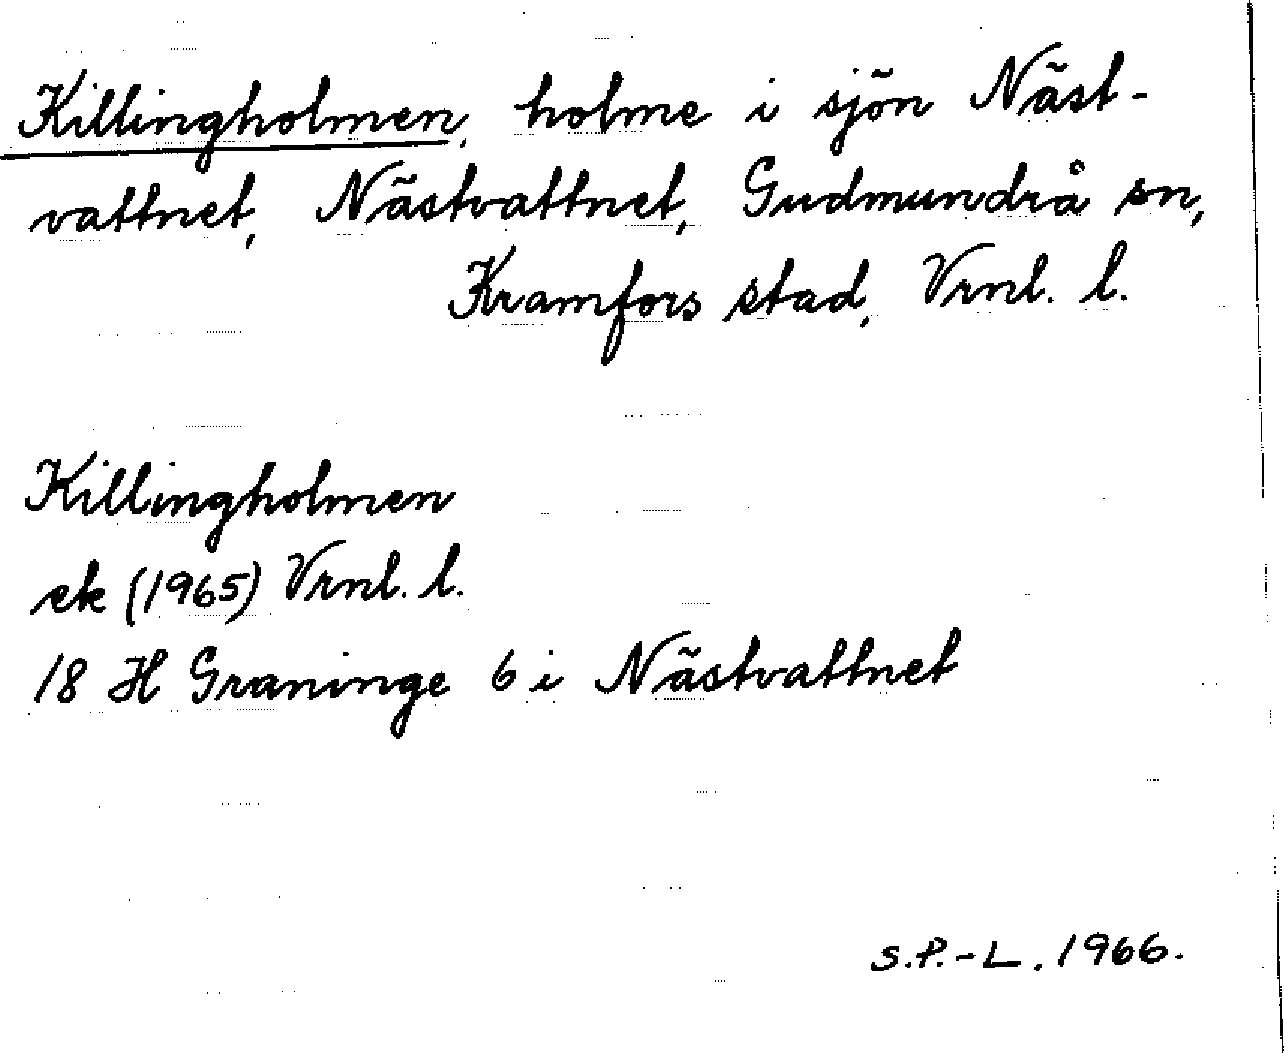 Killingholmen, holme i sjön Näst-
vattnet, Nästvattnet, Gudmundrå sn,
Kramfors stad, Vrnl. l.
Killingholmen
ek (1965) Vrnl. l.
18 H Graninge 6 i Nästvattnet
S.P.-L. 1966.